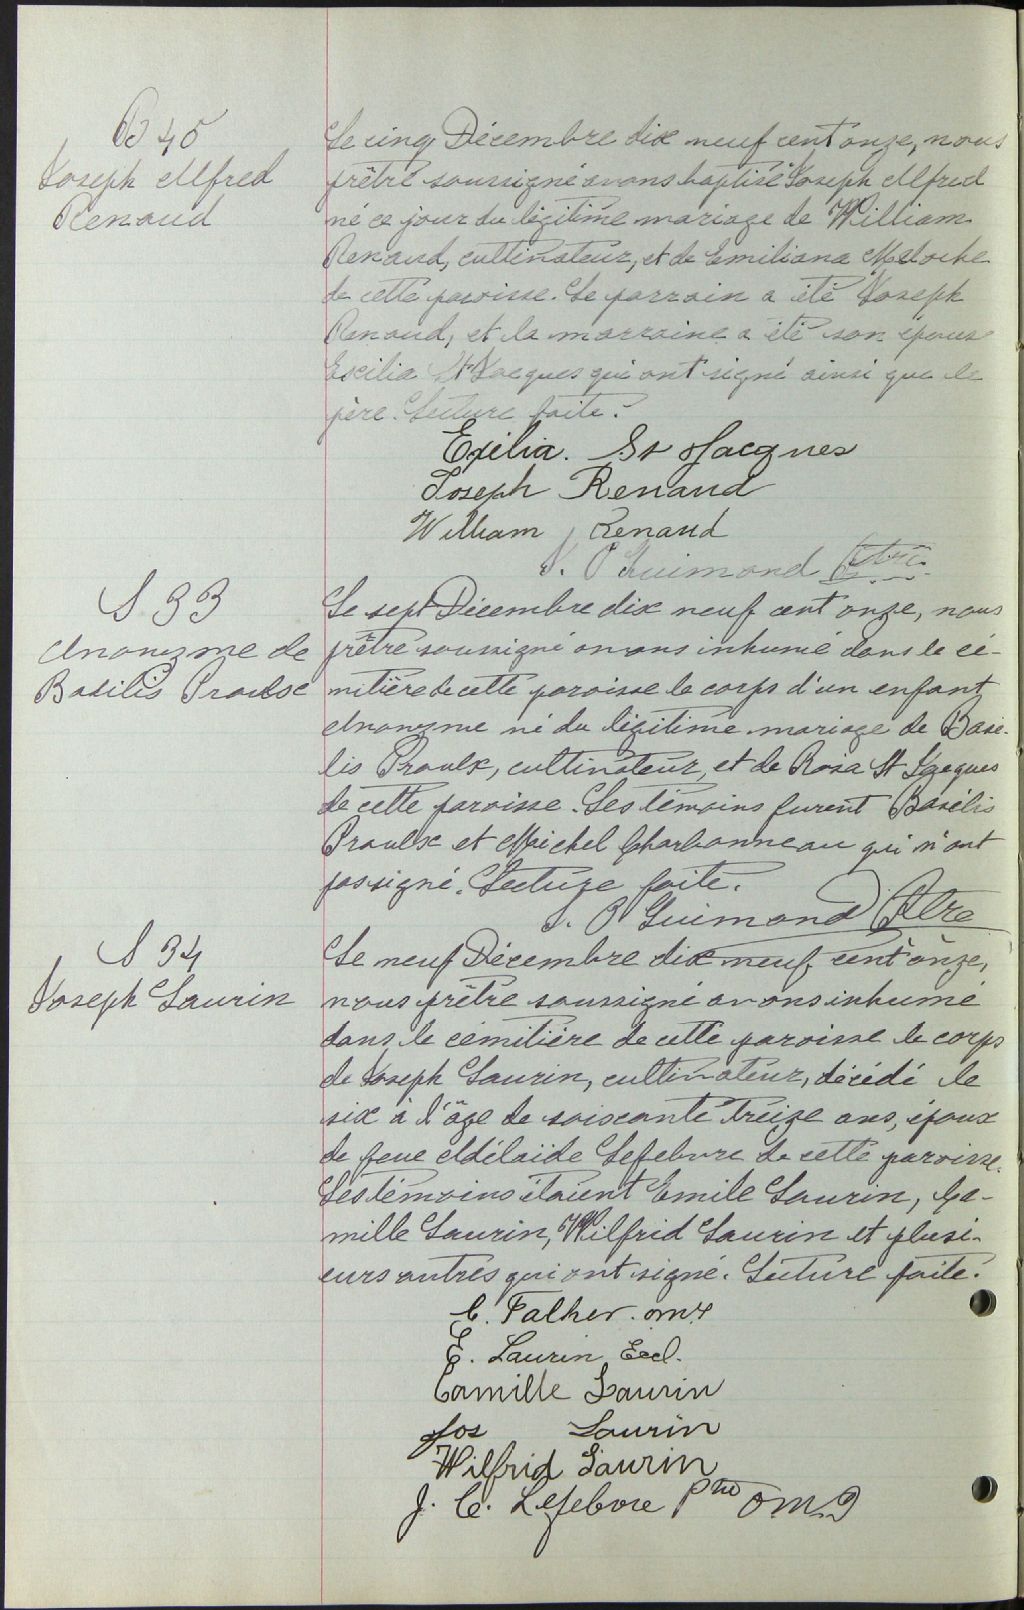 B 45
Joseph Alfred
Renaud
Le cinq Décembre dix neuf cent onze, nous
prêtre soussigné avons baptisé Joseph Alfred
né ce jour du légitime mariage de William
Renaud, cultivateur, et de Emiliana Meloche
de cette paroisse. Le parrain a été Joseph
Renaud, et la marraine a été son épouse
Exilia St Jacques qui ont signé ainsi que le
père. Lecture faite.
Exilia. St Jacques
Joseph Renaud
William Renaud
J. O Guimond Ptre
S 33
Anonyme de
Basilis Proulx
Le sept Décembre dix neuf cent onze, nous
prêtre soussigné avons inhumé dans le cé-
mitière de cette paroisse le corps d'un enfant
Anonyme né du légitime mariage de Basi-
lis Proulx, cultivateur, et de Rosa St Jacques
de cette paroisse. Les témoins furent Basilis
Proulx et Michel Charbonneau qui n'ont
pas signé. Lecture faite.
J. O Guimond Ptre
S 34
Joseph Laurin
Le neuf Décembre dix neuf cent onze,
nous prêtre soussigné avons inhumé
dans le cémitière de cette paroisse le corps
de Joseph Laurin, cultivateur, décédé le
six à l'âge de soixante treize ans, époux
de feue Adélaïde Lefebvre de cette paroisse.
Les témoins étaient Emile Laurin, Ca-
mille Laurin, Wilfrid Laurin et plusi-
eurs autres qui ont signé. Lecture faite.
C. Falher. omi
E. Laurin Eccl.
Camille Laurin
Jos Laurin
Wilfrid Laurin
J. C. Lefebvre Ptre OMI